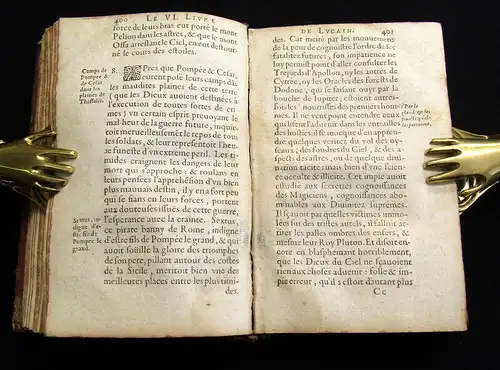 400 LE VI. LIVRE
force de leurs bras eut porté le mont
Pelion dans les astres, & que le mont
Ossa arrestant le Ciel, en eut destour-
né le cours des estoiles.
Camps de
Pompée &
de Cesar
dans les
plaines de
Thessalie.
8. Apres que Pompée & Cesar,
eurent posé leurs camps dãs
les maudites plaines de cette terre
(que les Dieux auoient destinées à
l'execution de toutes sortes de cri-
mes) vn certain esprit preuoyant le
mal-heur de la guerre future, inquie-
toit merueilleusemẽt le repos de tous
les soldats, & leur representoit l'heu-
re funeste d'vn extreme peril. Les ti-
mides craignans les dangers de leur
mort qui s'approche; & roulans en
leurs pensées l'apprehẽsion d'vn bien
plus mauuais destin, il y en a fort peu
qui se fians en leurs forces, portent
aux douteuses issuës de cette guerre,
l'esperance auec la crainte. Sextus,
ce pirate banny de Rome, indigne
d'estre fils de Pompée le grand, & qui
auoit soüillé la gloire des triomphes
de son pere, pillant autour des costes
de la Sicile, meritoit bien vne des
meilleures places entre les plus timi-
des.
Sextus, in-
digne d'e-
stre fils de
Pompée le
grand.
DE LVCAIN. 401
des. Car incité par les mouuemens
de la peur de cognoistre l'ordre de ses
fatalitez futures, son impatience ne
luy permist point d'aller consulter les
Trepieds d'Apollon, ny les antres de
Cyrrée, ny les Oracles des forests de
Dodone, qui se faisant ouyr par la
bouche de Iupiter, estoient autres-
Il ne veut point entendre ceux
des hosties il se mocque d'en appren-
dre quelques veritez du vol des oy-
seaux, des foudres du Ciel, & des a-
spects des astres, ou de quelque diui-
nation tacite mais bien d'vne scien-
ce occulte & illicite. Cet impie auoit
estudié aux secrettes cognoissances
des Magiciens, cognoissances abo-
minables aux Diuinitez supremes.
Il sçauoit par quelles victimes immo-
lées sur des tristes autels, il falloit at-
tirer les palles ombres des enfers, &
mesme leur Roy Pluton. Et disoit en-
core en blasphemant horriblement,
que les Dieux du Ciel ne sçauoient
rien aux choses aduenir: folle & im-
pie erreur, qu'il s'estoit d'autant plus
Cc